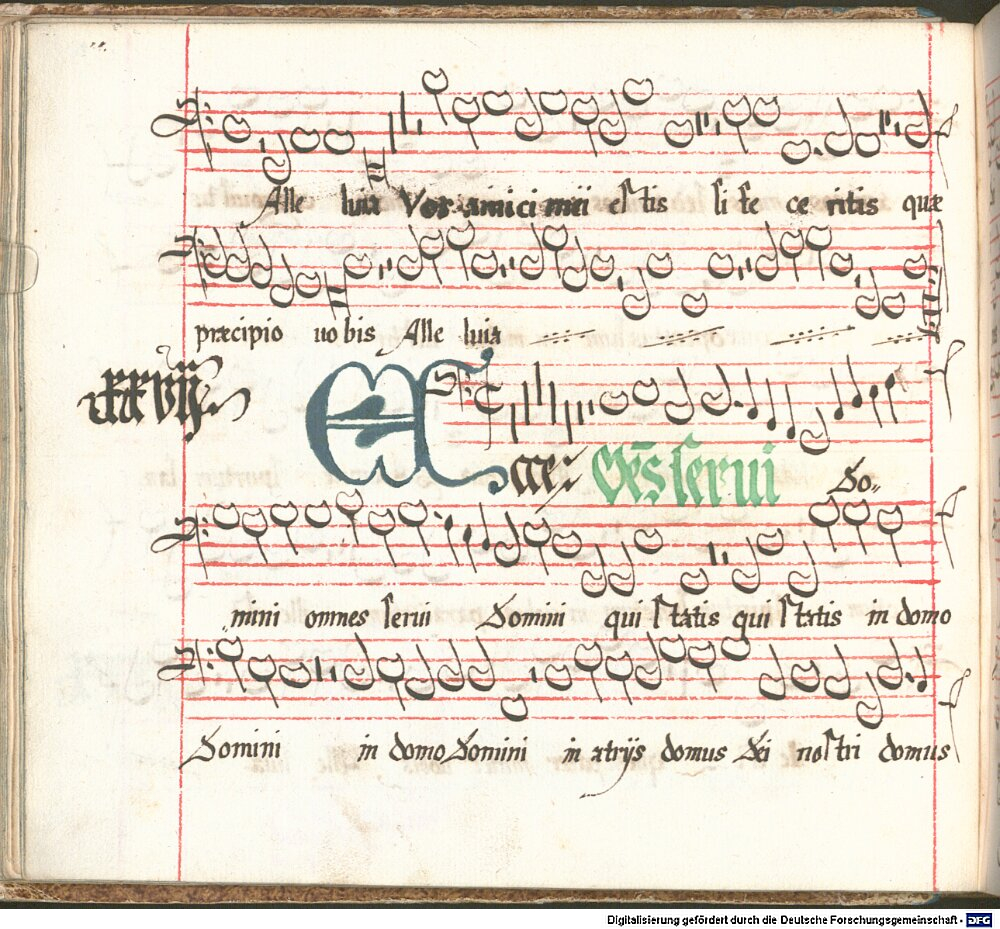 Alle luia Vos amici mei estis si fe ce ritis quæ
præcipio uo bis Alle luia
xxvij.
Ecce: Oēs serui
Do-
mini omnes serui Domini qui statis qui statis in domo
Domini in domo Domini in atrijs domus Dei nostri domus
Digitalisierung gefördert durch die Deutsche Forschungsgemeinschaft - DFG